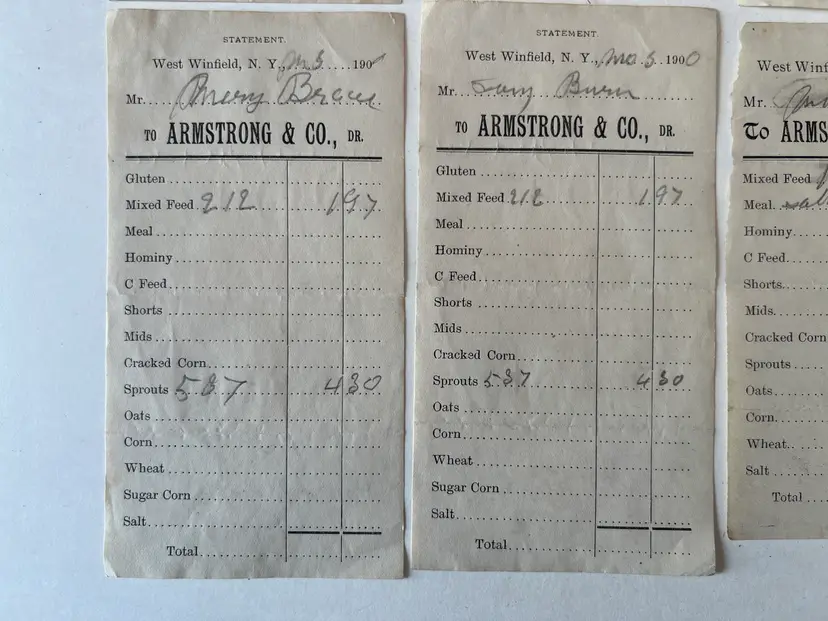 STATEMENT.
West Winfield, N. Y., 190
Mr. Brace
TO ARMSTRONG & CO., DR.
Gluten
Mixed Feed 212 1 97
Meal
Hominy
C Feed
Shorts
Mids
Cracked Corn
Sprouts 537 4 30
Oats
Corn
Wheat
Sugar Corn
Salt
Total
STATEMENT.
West Winfield, N. Y., 1900
Mr.
TO ARMSTRONG & CO., DR.
Gluten
Mixed Feed 212 1 97
Meal
Hominy
C Feed
Shorts
Mids
Cracked Corn
Sprouts 537 4 30
Oats
Corn
Wheat
Sugar Corn
Salt
Total
West Winf
Mr.
To ARMS
Mixed Feed
Meal
Hominy
C Feed
Shorts
Mids
Cracked Corn
Sprouts
Oats
Corn
Wheat
Salt
Total